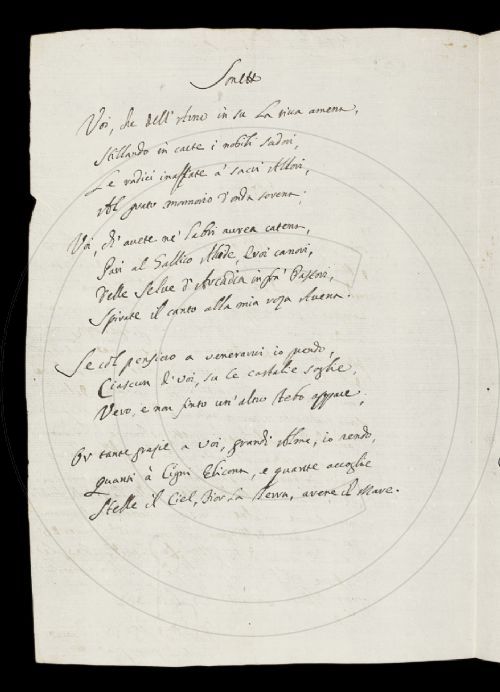 Sonetto
Voi, che dell' Arno in su la riva amena,
Stillando in carte i nobili sudori,
Le radici inaffiate a' sacri Allori,
Al grato mormorio d'onda serena;
Voi, ch' avete ne' labri aurea catena,
Pari al Gallico Alcide, e voi canori,
Delle Selve d'Arcadia infra' Pastori,
Spirate il canto alla mia roza Avena.
Se col pensiero a venerarvi io prendo,
Ciascun di voi, su le castalie soglie,
Vero, e non finto un' altro Febo appare;
Or tante grazie a voi, grandi Alme, io rendo,
quanti à Cigni Elicona, e quante accoglie
Stelle il Ciel, Fior la Terra, arene il Mare.